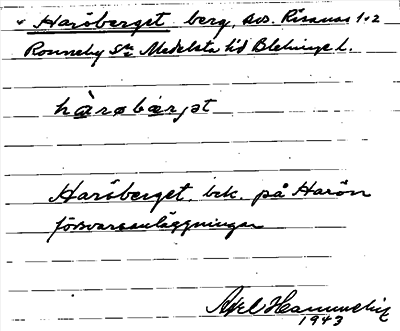 Haröberget berg, sos. Risanäs 1:2
Ronneby Sn Medelsta hd Blekinge l.
hàrøbærjət
Haröberget, bek. på Harön
försvarsanläggningar
Axel
1943